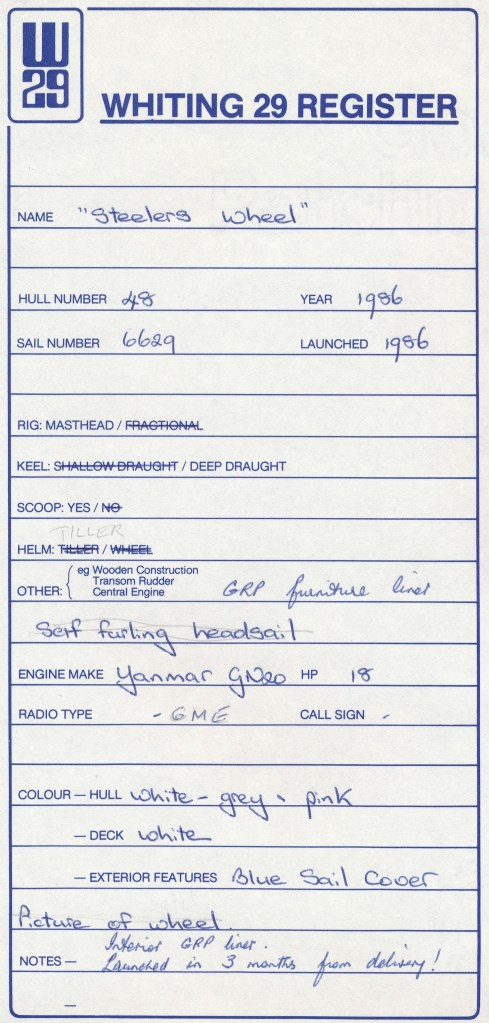 W
29
WHITING 29 REGISTER
NAME "Steelers Wheel"
HULL NUMBER 48 YEAR 1986
SAIL NUMBER 6629 LAUNCHED 1986
RIG: MASTHEAD / FRACTIONAL
KEEL: SHALLOW DRAUGHT / DEEP DRAUGHT
SCOOP: YES / NO
TILLER
HELM: TILLER / WHEEL
eg Wooden Construction
Transom Rudder
OTHER: Central Engine GRP furniture liner
Serf furling headsail
ENGINE MAKE Yanmar GN20 HP 18
RADIO TYPE - GME CALL SIGN -
COLOUR — HULL white - grey - pink
— DECK white
— EXTERIOR FEATURES Blue Sail Cover
Picture of wheel.
Interior GRP liner.
NOTES — Launched in 3 months from delivery!
—